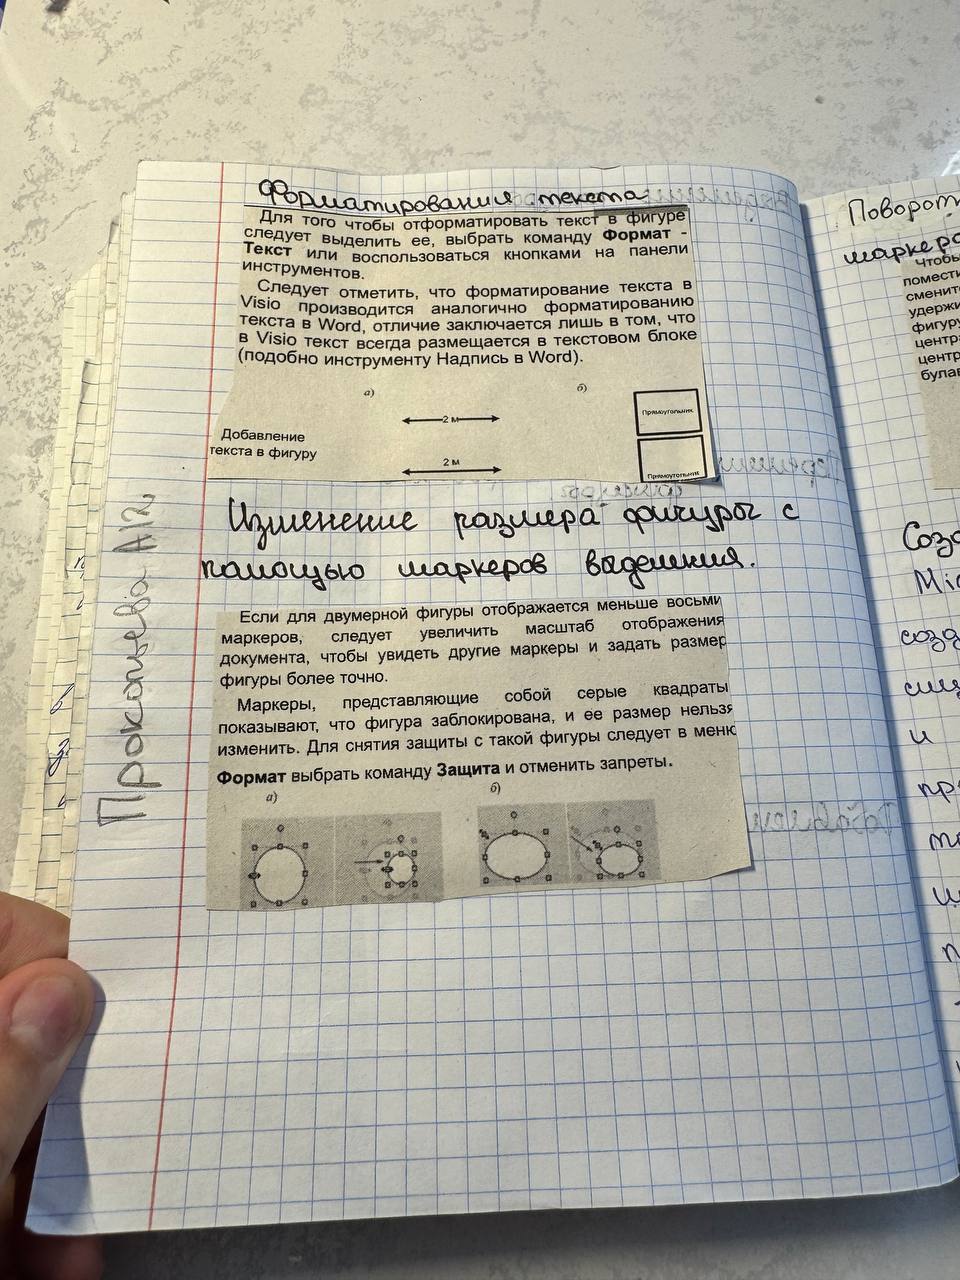 Форматирования текста
Для того чтобы отформатировать текст в фигуре
следует выделить ее, выбрать команду Формат -
Текст или воспользоваться кнопками на панели
инструментов.
Следует отметить, что форматирование текста в
Visio производится аналогично форматированию
текста в Word, отличие заключается лишь в том, что
в Visio текст всегда размещается в текстовом блоке
(подобно инструменту Надпись в Word).
а)
б)
2 м
Прямоугольник
Добавление
текста в фигуру
2 м
Прямоугольник
Изменение размера фигуры с
помощью маркеров выделения.
Если для двумерной фигуры отображается меньше восьми
маркеров, следует увеличить масштаб отображения
документа, чтобы увидеть другие маркеры и задать размер
фигуры более точно.
Маркеры, представляющие собой серые квадраты
показывают, что фигура заблокирована, и ее размер нельзя
изменить. Для снятия защиты с такой фигуры следует в меню
Формат выбрать команду Защита и отменить запреты.
а)
б)
А12
Поворот
маркеро
Чтобы
помести
сменит
удержи
фигуру
центра
центр
булав
Созд
Mic
созд
и
пр